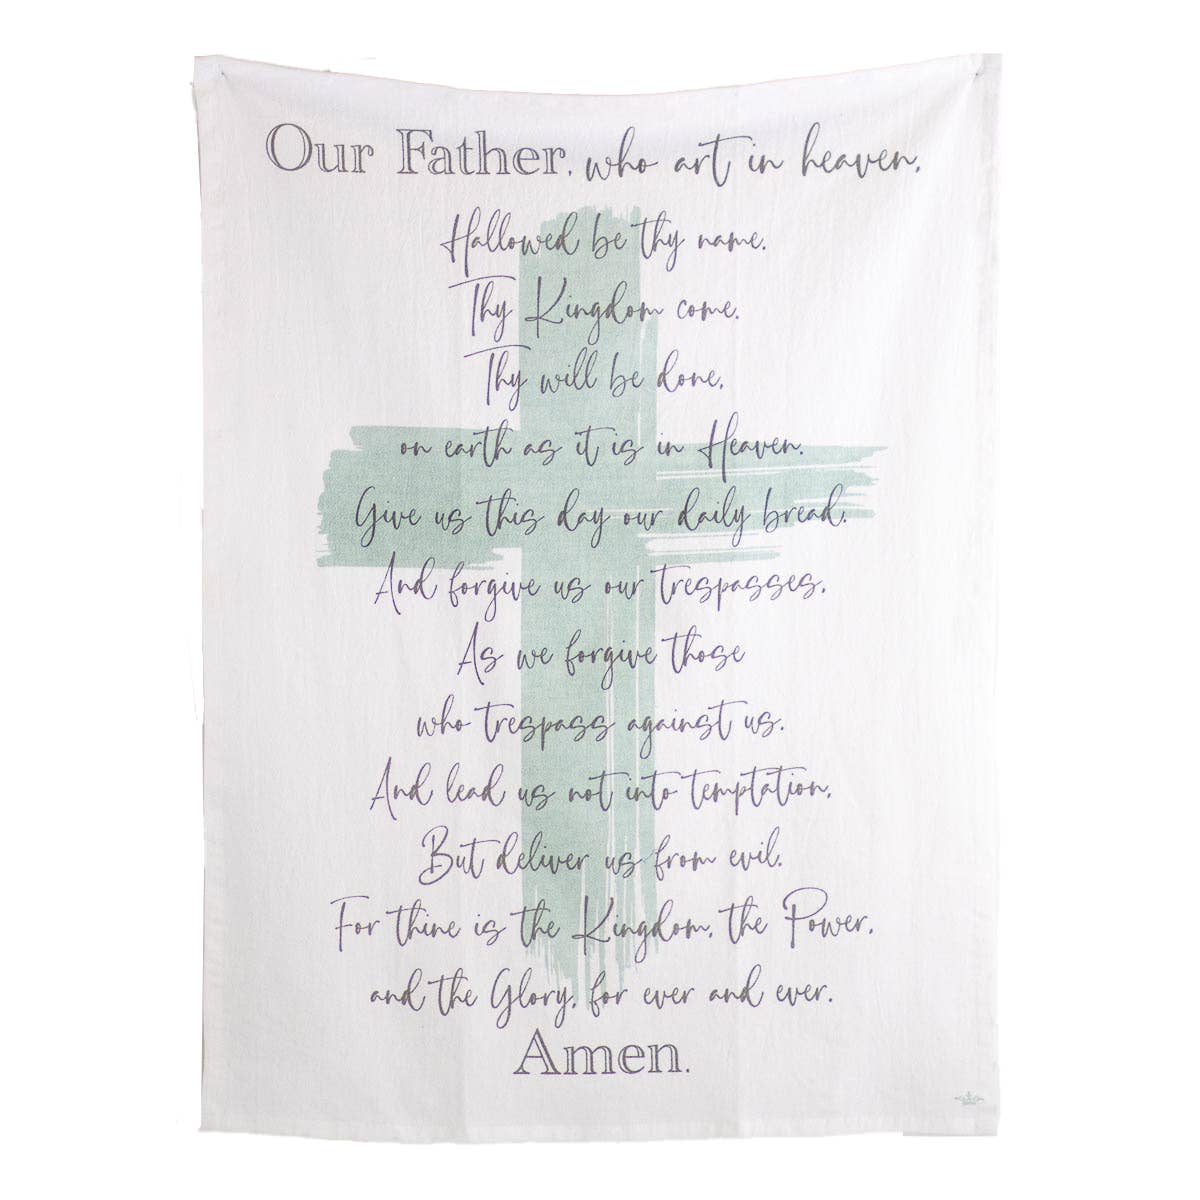 Our Father, who art in heaven,
Hallowed be thy name.
Thy Kingdom come.
Thy will be done,
on earth as it is in Heaven.
Give us this day our daily bread.
And forgive us our trespasses,
As we forgive those
who trespass against us.
And lead us not into temptation,
But deliver us from evil.
For thine is the Kingdom, the Power,
and the Glory, for ever and ever.
Amen.